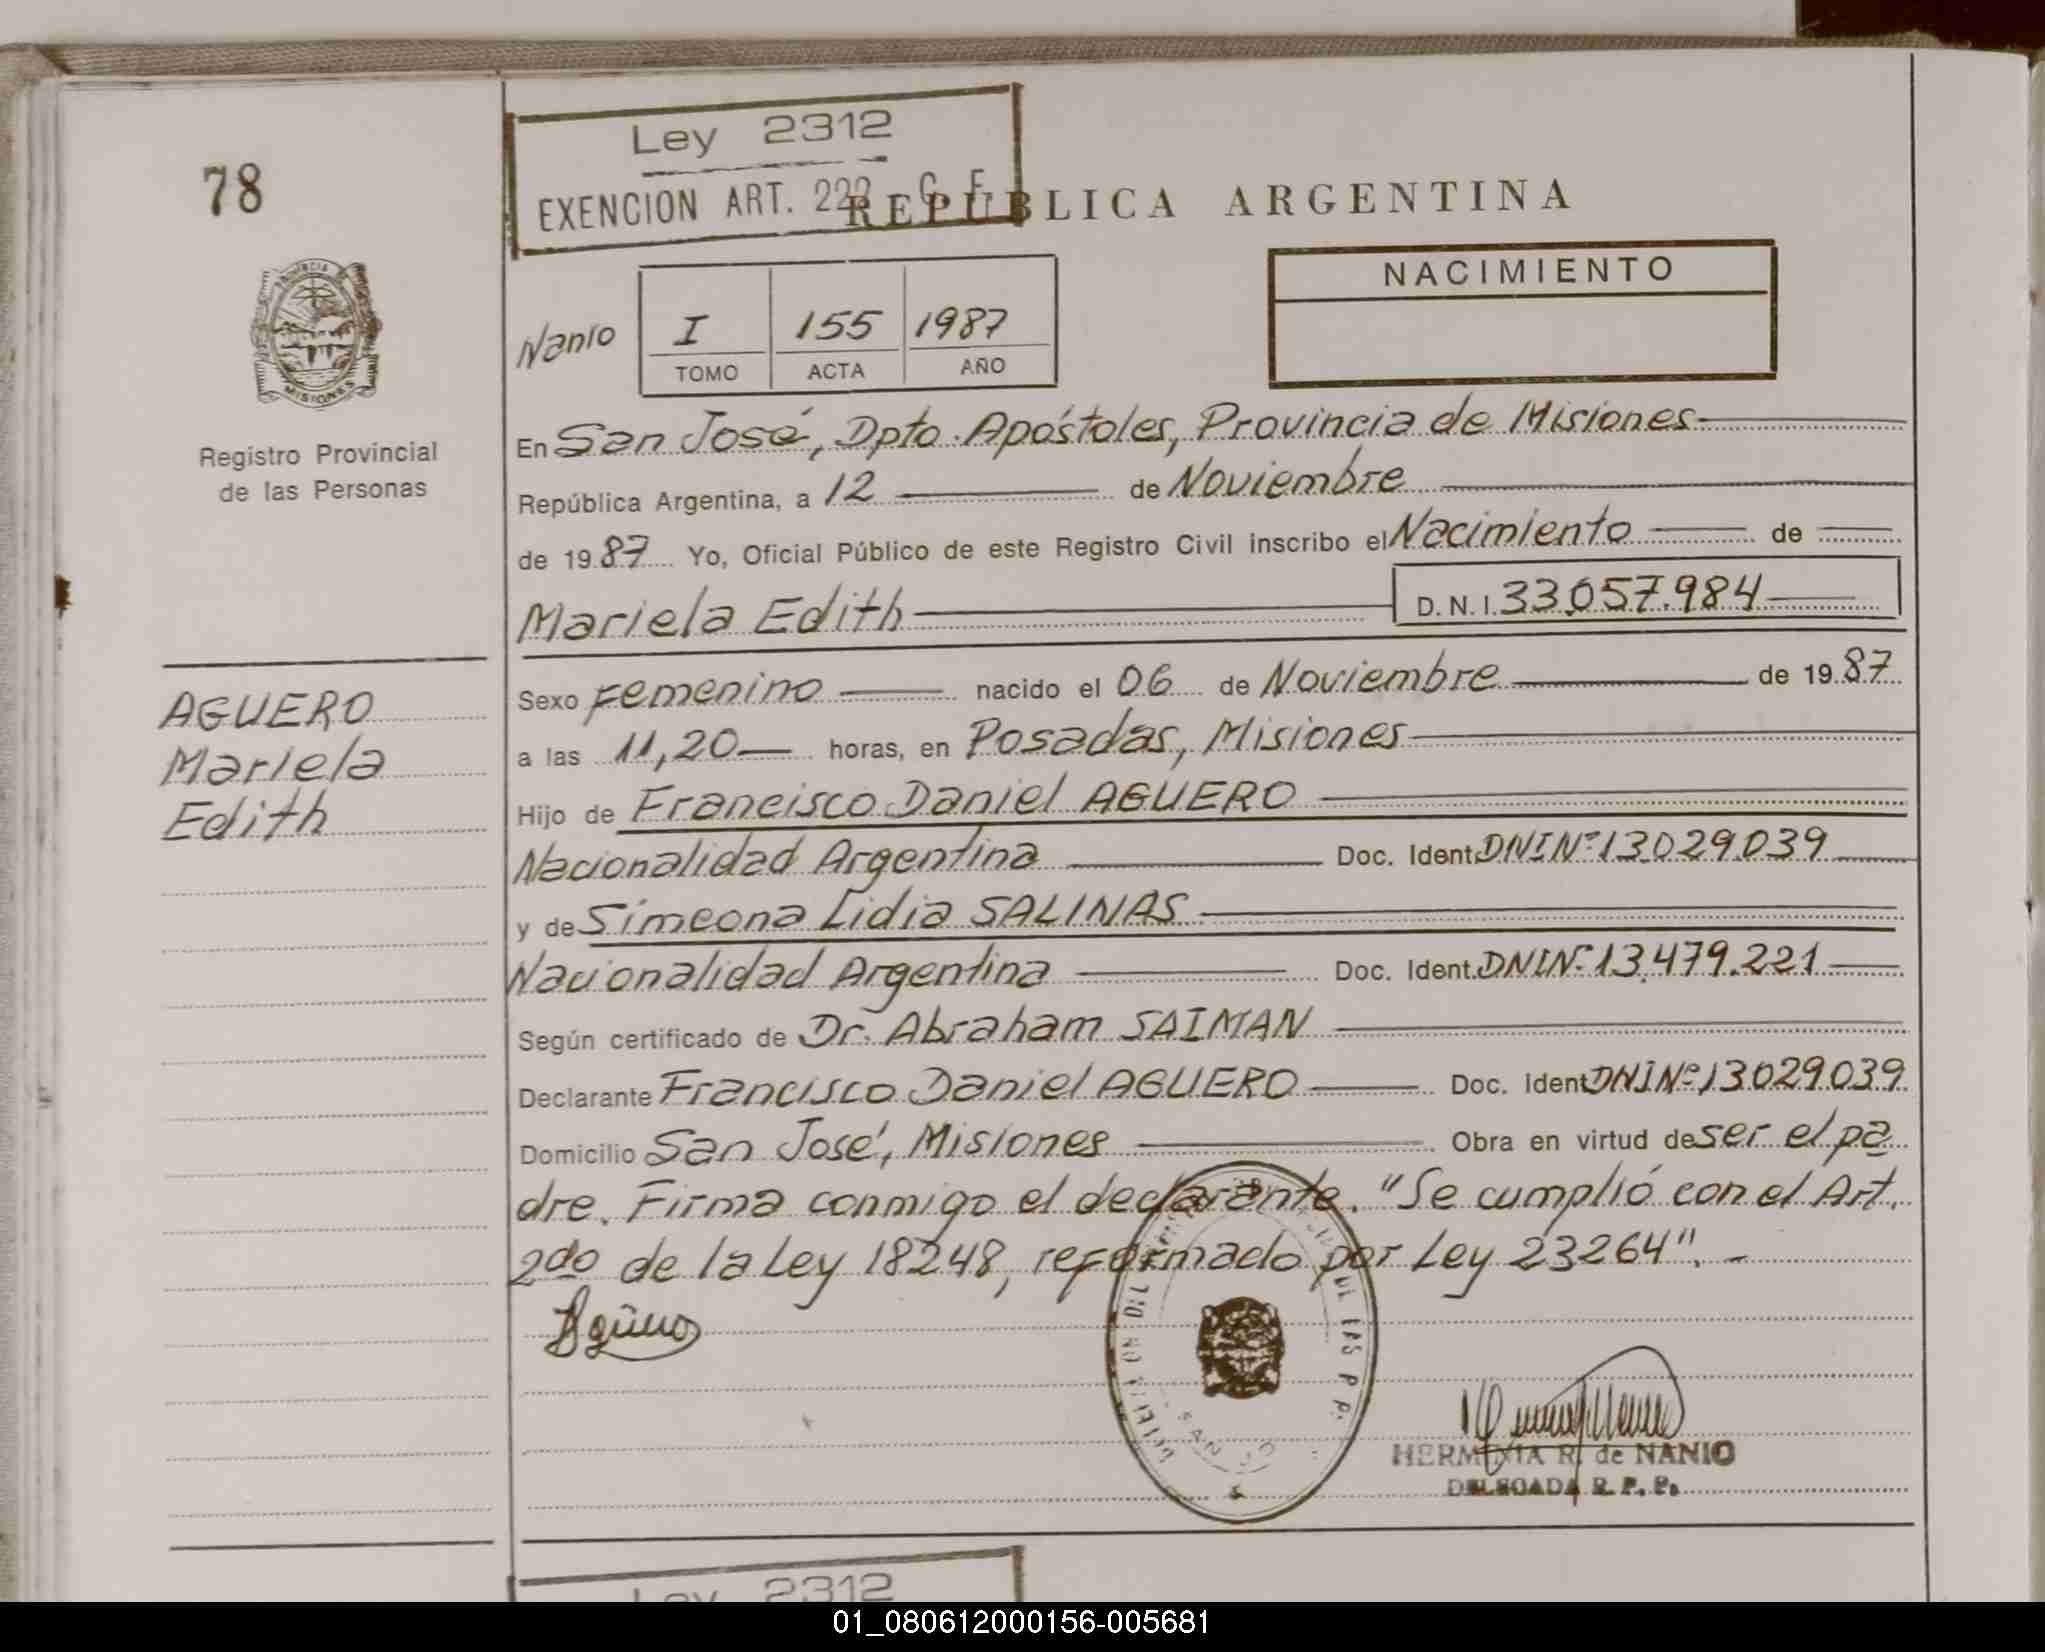 Ley 2312
EXENCION ART. 222 C. F.
78
REPUBLICA ARGENTINA
PROVINCIA DE
MISIONES
Registro Provincial
de las Personas
NACIMIENTO
Nanio
I 155 1987
TOMO ACTA AÑO
En San José, Dpto. Apóstoles, Provincia de Misiones
República Argentina, a 12 de Noviembre
de 1987 Yo, Oficial Público de este Registro Civil inscribo el Nacimiento de
Mariela Edith D.N.I. 33.057.984
AGUERO
Mariela
Edith
Sexo Femenino nacido el 06 de Noviembre de 1987
a las 11,20 horas, en Posadas, Misiones
Hijo de Francisco Daniel AGUERO
Nacionalidad Argentina Doc. Ident. DNI Nº 13.029.039
y de Simeona Lidia SALINAS
Nacionalidad Argentina Doc. Ident. DNI Nº 13.479.221
Según certificado de Dr. Abraham SAIMAN
Declarante Francisco Daniel AGUERO Doc. Ident DNI Nº 13029039
Domicilio San José, Misiones Obra en virtud de ser el pa
dre. Firma conmigo el declarante. "Se cumplió con el Art.
2do de la Ley 18248, reformado por Ley 23264".-
Agüero
DE LAS P P.
SAN JO
HERMINIA R. de NANIO
DELEGADA R. P. P.
Ley 2312
01_080612000156-005681